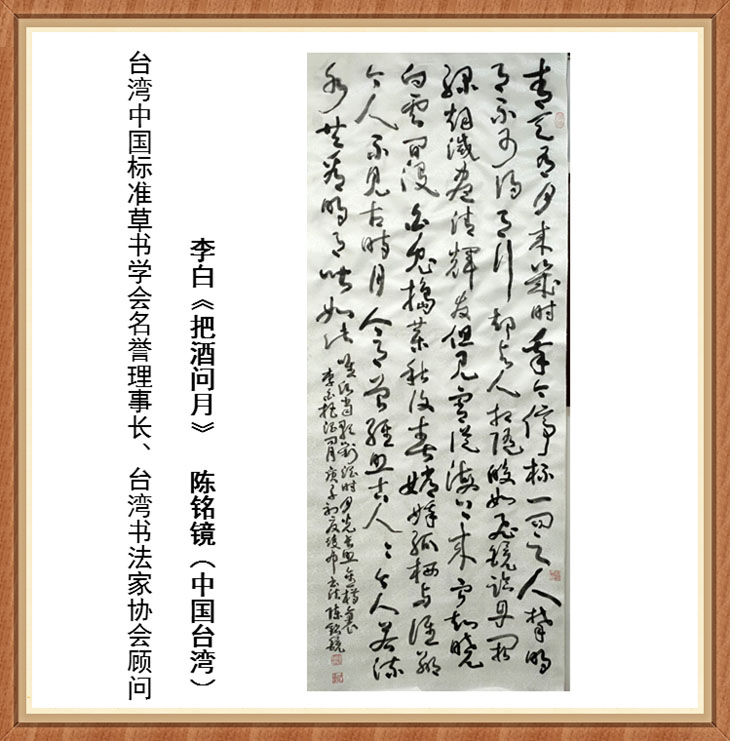 青天有月来幾时我今停杯一问之人攀明
月不可得月行却与人相随皎如飞镜临丹阙
绿烟滅盡清輝发但见宵从海上来宁知晓
向雲间没白兔捣药秋復春嫦娥孤栖与谁鄰
今人不见古时月今月曾經照古人古人今人若流
水共看明月皆如此
唯愿当歌对酒时月光长照金樽裏
李白把酒问月庚子初夏 陈铭镜
李白《把酒问月》 陈铭镜（中国台湾）
台湾中国标准草书学会名誉理事长、台湾书法家协会顾问